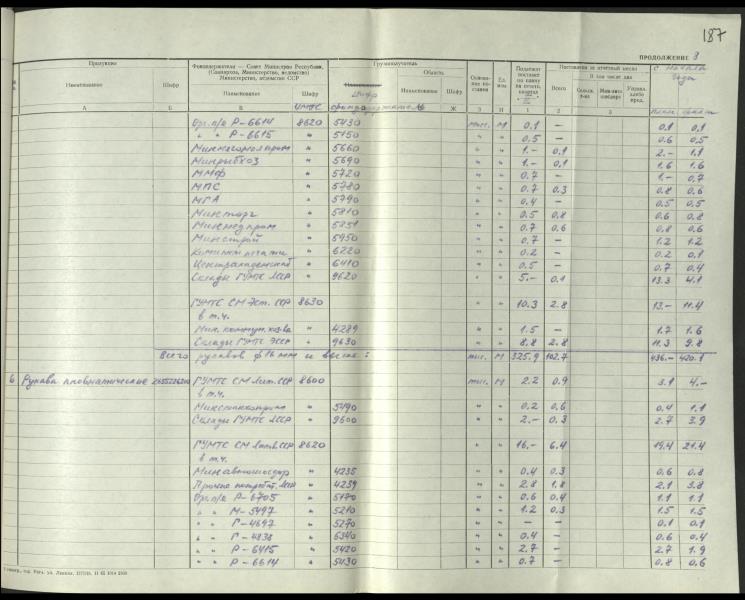 187
ПРОДОЛЖЕНИЕ 8
Продукция
Фондодержатели — Совет Министров Республики, (Совнархоз, Министерство, ведомство) Министерство, ведомство СССР
Грузополучатель
Поставлено за отчетный месяц
с начала года
Наименование Шифр Наименование Шифр Наименование Шифр Область Наименование Шифр Всего В том числе для
УМТС фондодержателя
А Б В Г Ж З И 1 2 3 план факт
Орг. п/я Р-6614 8620 5430 тыс. м 0.1 — 0.1 0.1
" " Р-6615 " 5150 " " 0.5 — 0.6 0.5
Минмясомолпром " 5660 " " 1.- 0.1 2.- 1.1
Минрыбхоз " 5690 " " 1.- 0.1 1.6 1.6
ММФ " 5720 " " 0.7 — 1.- 0.7
МПС " 5780 " " 0.7 0.3 0.8 0.6
МГА " 5790 " " 0.4 — 0.5 0.5
Минторг " 5810 " " 0.5 0.8 0.6 0.8
Минмедпром " 5851 " " 0.7 0.6 0.8 0.6
Минстрой " 5950 " " 0.7 — 1.2 1.2
Комитет печати " 6220 " " 0.2 — 0.2 0.1
" 6410 " " 0.5 — 0.7 0.4
Склады ГУМТС ЛССР " 9620 " " 5.- 0.1 13.3 4.1
ГУМТС СМ Эст. ССР 8630 " " 10.3 2.8 13.- 11.4
в т.ч.
Мин. коммун. хоз-ва " 4289 " " 1.5 — 1.7 1.6
Склады ГУМТС ЭССР " 9630 " " 8.8 2.8 11.3 9.8
Всего рукавов ф 16 мм и выше: тыс. м 325.9 102.7 436.- 420.1
6 Рукава пневматические ГУМТС СМ Лит. ССР 8600 тыс. м 2.2 0.9 3.1 4.-
в т.ч.
" 5490 " " 0.2 0.6 0.4 1.1
Склады ГУМТС ЛССР " 9600 " " 2.- 0.3 2.7 3.9
ГУМТС СМ Латв. ССР 8620 " " 16.- 6.4 19.4 21.4
в т.ч.
Минавтошосдор " 4235 " " 0.4 0.3 0.6 0.8
Прочие потребит. ЛССР " 4239 " " 2.8 1.8 2.1 3.8
Орг. п/я Р-6705 " 5170 " " 0.6 0.4 1.1 1.1
" " М-5497 " 5210 " " 1.2 0.3 1.5 1.5
" " Г-4697 " 5270 " " — — 0.1 0.1
" " Г-4838 " 5340 " " 0.4 — 0.6 0.4
" " Р-6415 " 5420 " " 2.7 — 2.7 1.9
" " Р-6614 " 5430 " " 0.7 — 0.8 0.6